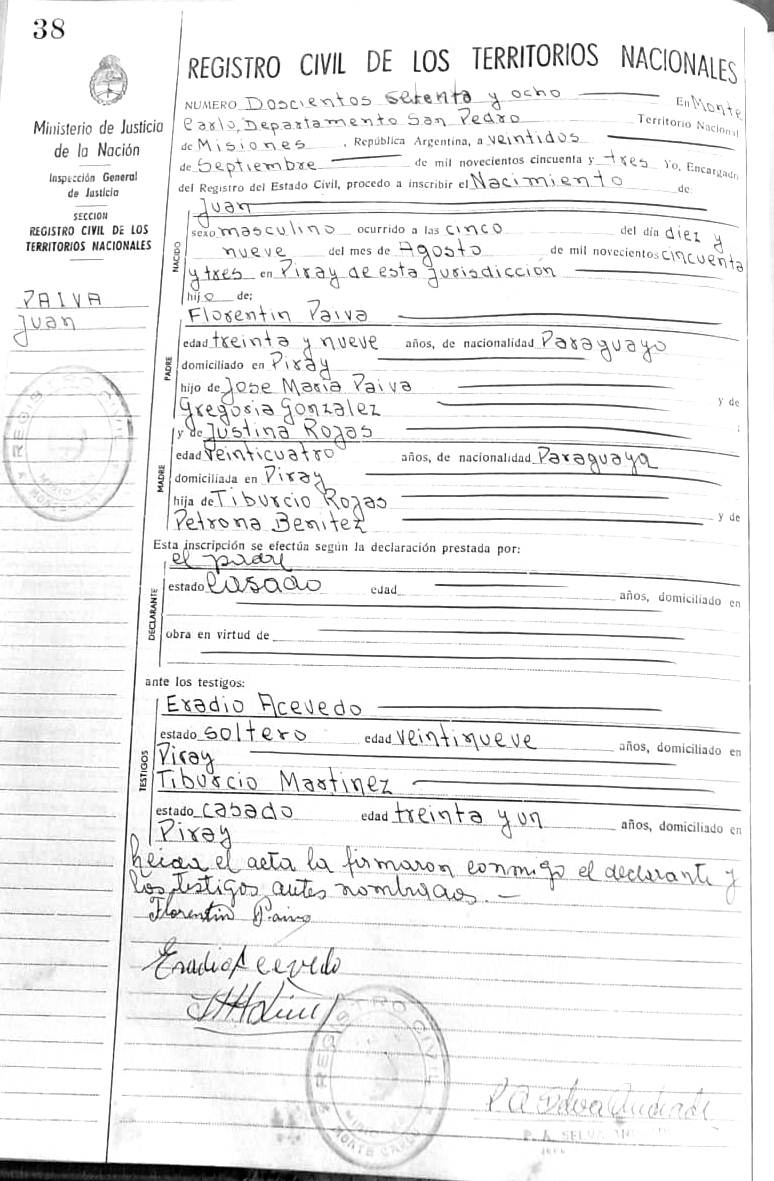 38
Ministerio de Justicia
de la Nación
Inspección General
de Justicia
SECCION
REGISTRO CIVIL DE LOS
TERRITORIOS NACIONALES
PAIVA
Juan
REGISTRO CIVIL DE LOS TERRITORIOS NACIONALES
NUMERO Doscientos setenta y ocho En Monte
Carlo, Departamento San Pedro Territorio Nacional
de Misiones, República Argentina, a veintidos
de Septiembre de mil novecientos cincuenta y tres Yo, Encargado
del Registro del Estado Civil, procedo a inscribir el Nacimiento de
NACIDO
Juan
sexo masculino ocurrido a las cinco del día diez y
nueve del mes de Agosto de mil novecientos cincuenta
y tres en Piray de esta jurisdiccion
hijo de;
PADRE
Florentin Paiva
edad treinta y nueve años, de nacionalidad Paraguayo
domiciliado en Piray
hijo de Jose Maria Paiva y de
Gregoria Gonzalez ;
MADRE
y de Justina Rojas
edad veinticuatro años, de nacionalidad Paraguaya
domiciliada en Piray
hija de Tiburcio Rojas y de
Petrona Benitez
Esta inscripción se efectúa según la declaración prestada por:
DECLARANTE
el padre
estado casado edad años, domiciliado en
obra en virtud de
ante los testigos:
TESTIGOS
Eradio Acevedo
estado soltero edad veintinueve años, domiciliado en
Piray
Tiburcio Martinez
estado casado edad treinta y un años, domiciliado en
Piray
Leida el acta la firmaron conmigo el declarante y
los testigos antes nombrados.—
Florentin Paiva
Eradio Acevedo
REGISTRO CIVIL
MONTE CARLO
REGISTRO CIVIL
MONTE CARLO